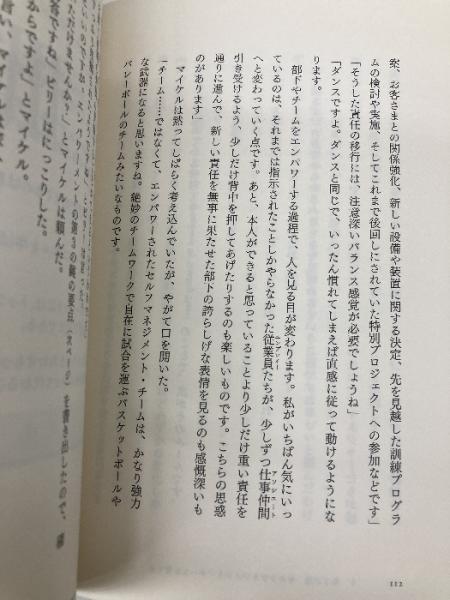 案、お客さまとの関係強化、新しい設備や装置に関する決定、先を見越した訓練プログラ
ムの検討や実施、そしてこれまで後回しにされていた特別プロジェクトへの参加などです」
「そうした責任の移行には、注意深いバランス感覚が必要でしょうね」
「ダンスですよ。ダンスと同じで、いったん慣れてしまえば直感に従って動けるようにな
ります。
部下やチームをエンパワーする過程で、人を見る目が変わります。私がいちばん気にいっ
ているのは、それまでは指示されたことしかやらなかった従業員たちが、少しずつ仕事仲間
エンプロイー
アソシエート
へと変わっていく点です。あと、本人ができると思っていることより少しだけ重い責任を
引き受けるよう、少しだけ背中を押してあげたりするのも楽しいものです。こちらの思惑
通りに進んで、新しい責任を無事に果たせた部下の誇らしげな表情を見るのも感慨深いも
のがあります」
マイケルは黙ってしばらく考え込んでいたが、やがて口を開いた。
「チーム……ではなくて、エンパワーされたセルフマネジメント・チームは、かなり強力
な武器になると思いますね。絶妙のチームワークで自在に試合を運ぶバスケットボールや
バレーボールのチームみたいなものです。
112
を書き出したので、
ントの第3の鍵の要点
ただけませんか？」とマイケルは頼んだ。
答ですね」ビリーはにっこりした。
からです」とマイケル。
言い、マイケ